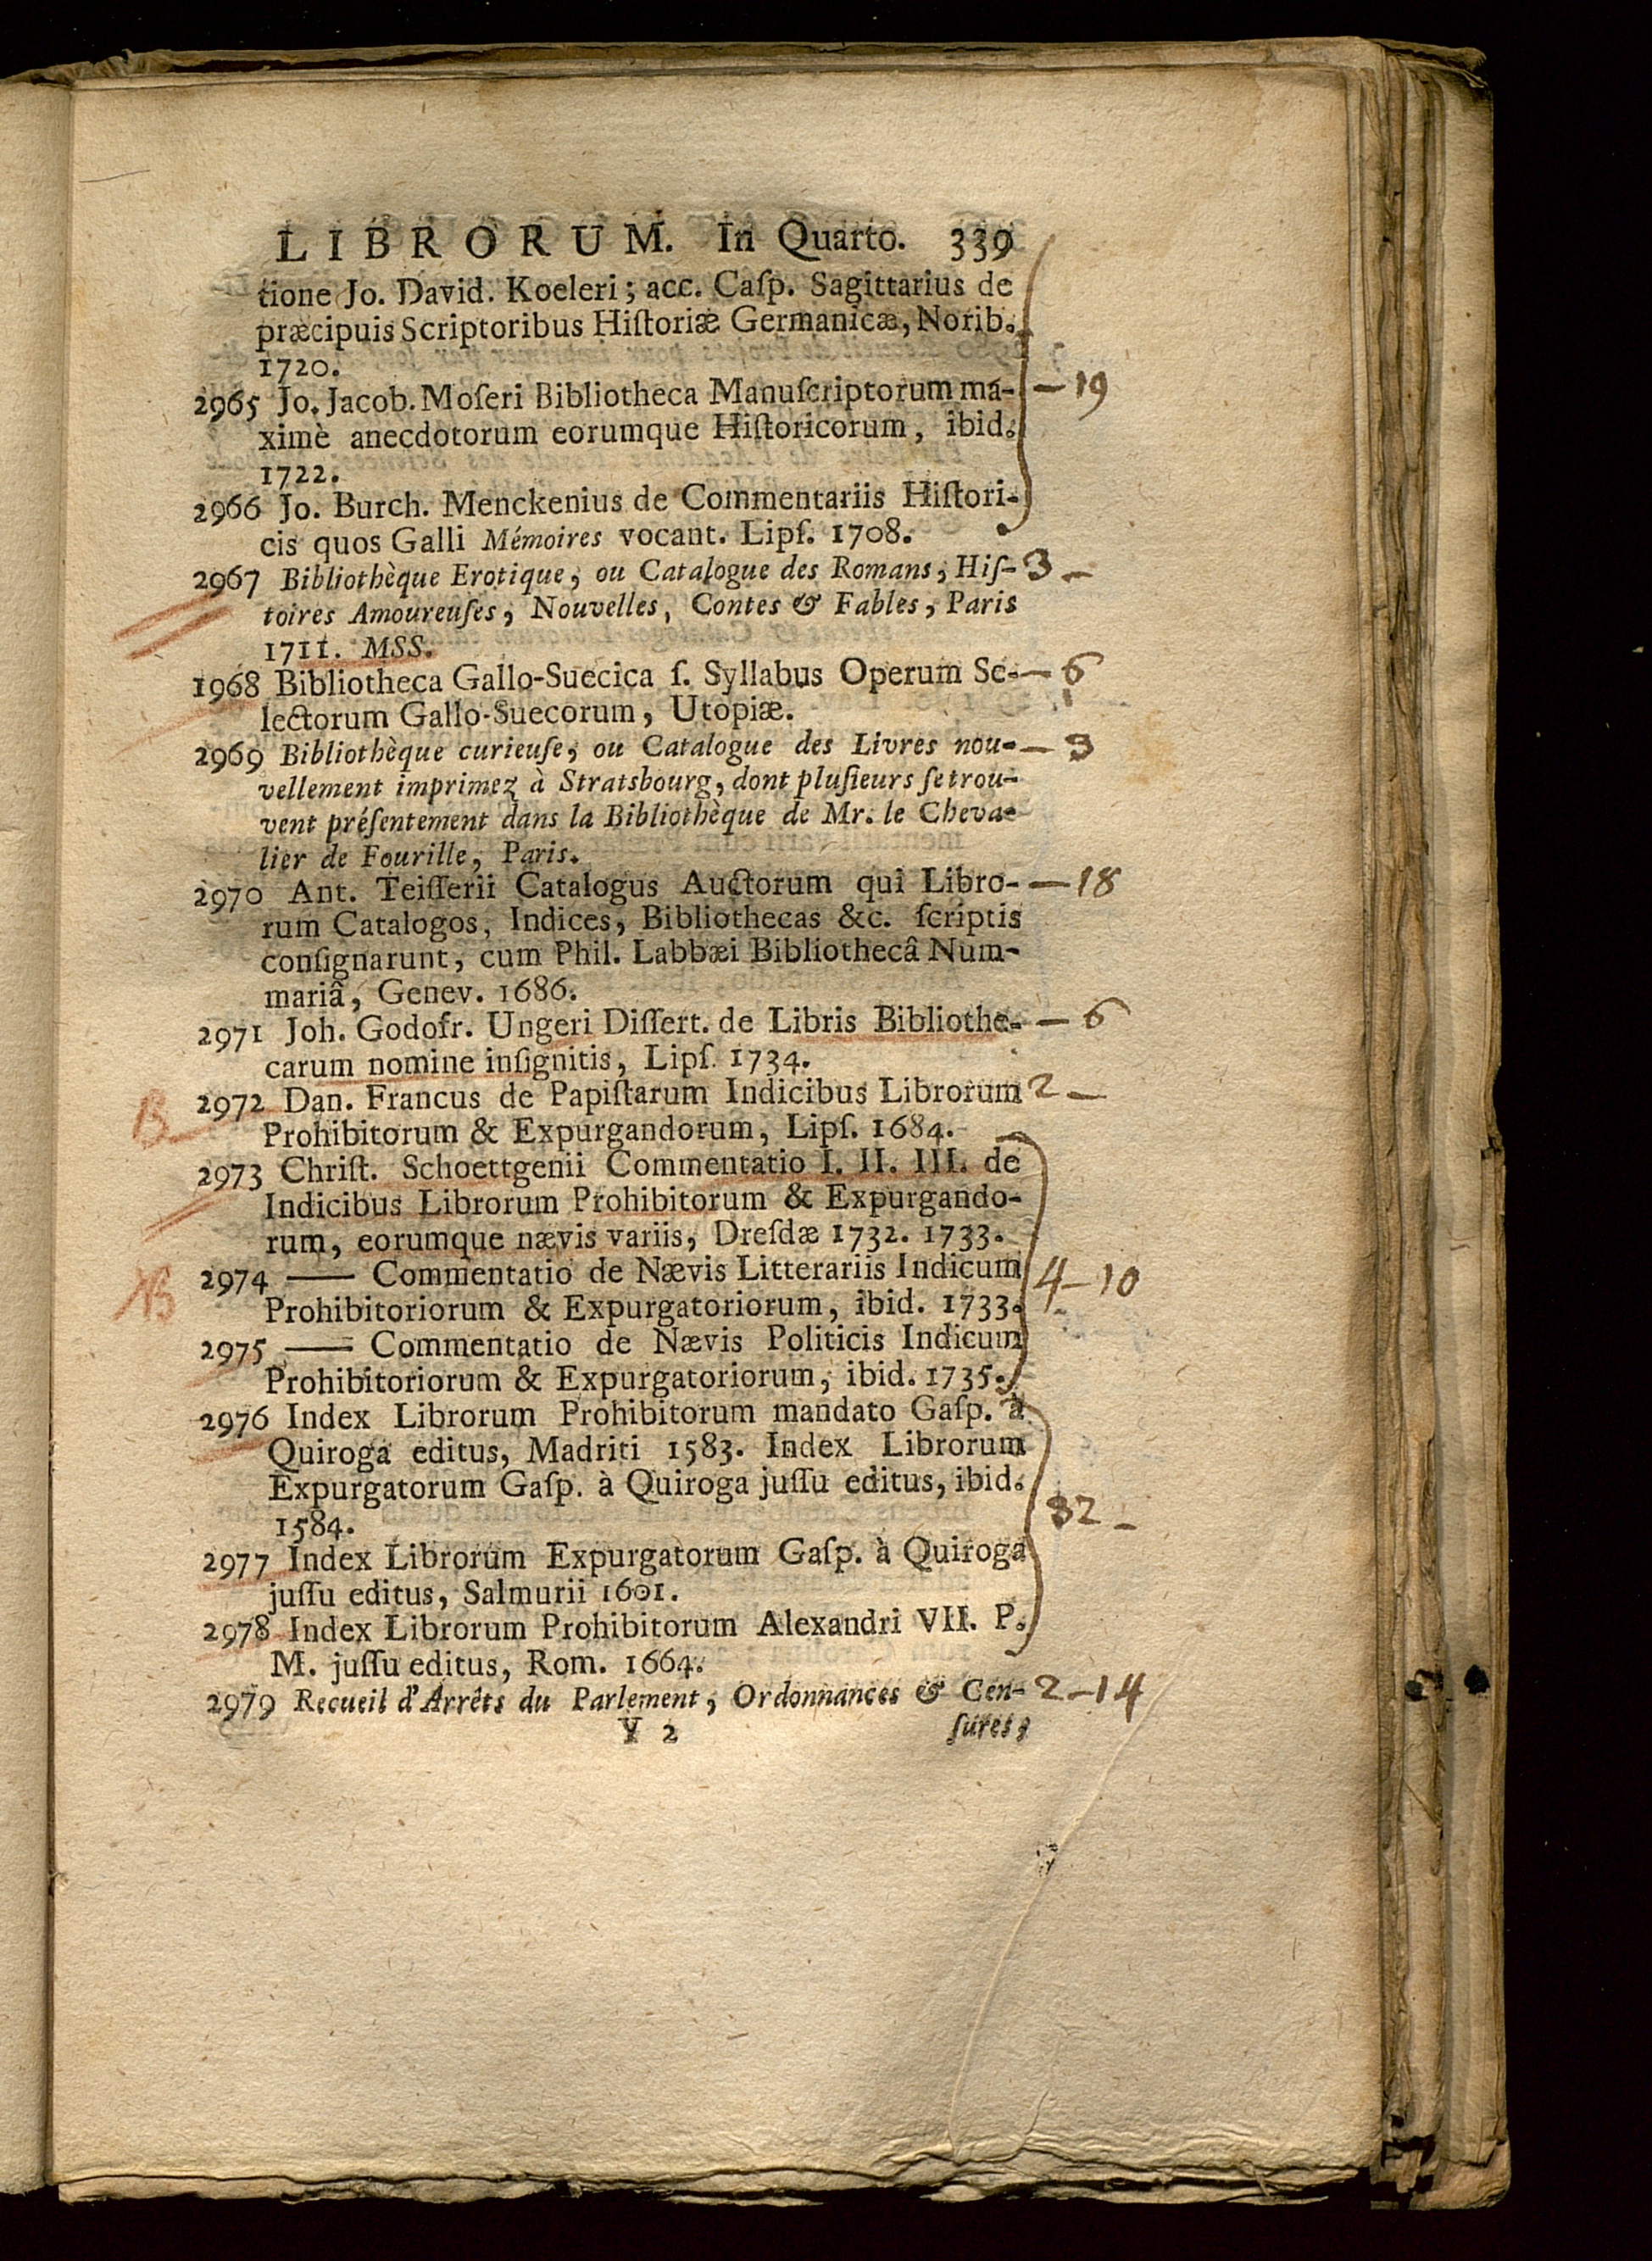 LIBRORUM. In Quarto. 339
tione Jo. David. Koeleri; acc. Caſp. Sagittarius de
præcipuis Scriptoribus Hiſtoriæ Germanicæ, Norib.
1720.
2965 Jo. Jacob. Moſeri Bibliotheca Manuſcriptorum ma- — 19
ximè anecdotorum eorumque Hiſtoricorum, ibid.
1722.
2966 Jo. Burch. Menckenius de Commentariis Hiſtori-
cis quos Galli Mémoires vocant. Lipſ. 1708.
2967 Bibliothèque Erotique, ou Catalogue des Romans, Hiſ- 3 —
toires Amoureuſes, Nouvelles, Contes & Fables, Paris
1711. MSS.
1968 Bibliotheca Gallo-Suecica ſ. Syllabus Operum Se- — 6
lectorum Gallo-Suecorum, Utopiæ.
2969 Bibliothèque curieuſe, ou Catalogue des Livres nou- — 3
vellement imprimez à Stratsbourg, dont pluſieurs ſe trou-
vent préſentement dans la Bibliothèque de Mr. le Cheva-
lier de Fourille, Paris.
2970 Ant. Teiſſerii Catalogus Auctorum qui Libro- — 18
rum Catalogos, Indices, Bibliothecas &c. ſcriptis
conſignarunt, cum Phil. Labbæi Bibliothecâ Num-
mariâ, Genev. 1686.
2971 Joh. Godofr. Ungeri Diſſert. de Libris Bibliothe- — 6
carum nomine inſignitis, Lipſ. 1734.
2972 Dan. Francus de Papiſtarum Indicibus Librorum 2 —
Prohibitorum & Expurgandorum, Lipſ. 1684.
2973 Chriſt. Schoettgenii Commentatio I. II. III. de
Indicibus Librorum Prohibitorum & Expurgando-
rum, eorumque nævis variis, Dreſdæ 1732. 1733.
2974 —— Commentatio de Nævis Litterariis Indicum 4 — 10
Prohibitoriorum & Expurgatoriorum, ibid. 1733.
2975 —— Commentatio de Nævis Politicis Indicum
Prohibitoriorum & Expurgatoriorum, ibid. 1735.
2976 Index Librorum Prohibitorum mandato Gaſp. à
Quiroga editus, Madriti 1583. Index Librorum
Expurgatorum Gaſp. à Quiroga juſſu editus, ibid.
1584. 32 —
2977 Index Librorum Expurgatorum Gaſp. à Quiroga
juſſu editus, Salmurii 1601.
2978 Index Librorum Prohibitorum Alexandri VII. P.
M. juſſu editus, Rom. 1664.
2979 Recueil d'Arrêts du Parlement, Ordonnances & Cen- 2 — 14
Y 2 ſures,